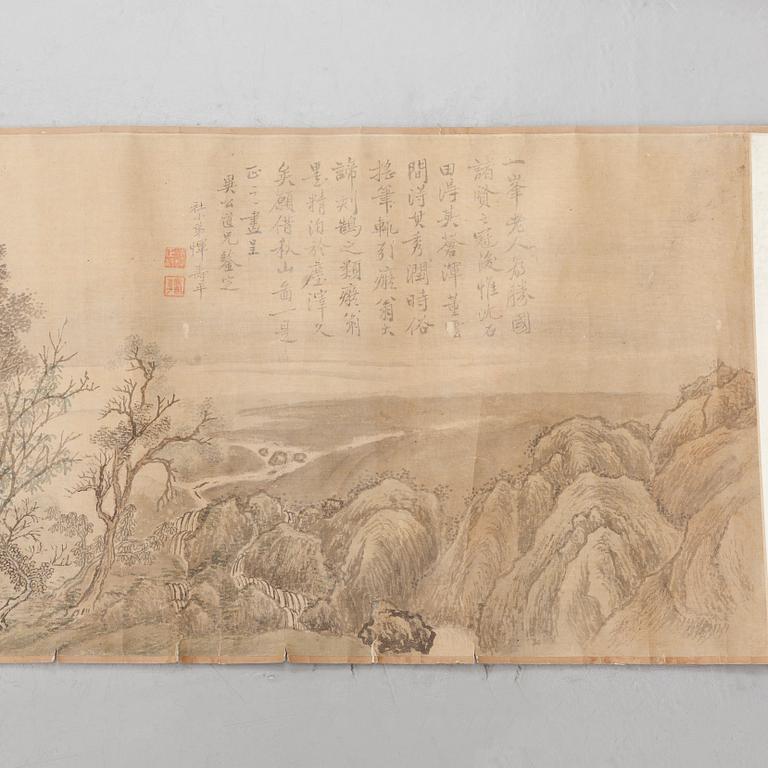 一峯老人為勝國
諸賢之冠後惟沈石
田得其蒼渾董雲
間得其秀潤時俗
搖筆輒引癡翁大
諦刻鵠之類癡翁
墨精泊於塵滓久
矣願借秋山圖一是
正之畫呈
吳公道兄鑒定
社小弟惲壽平